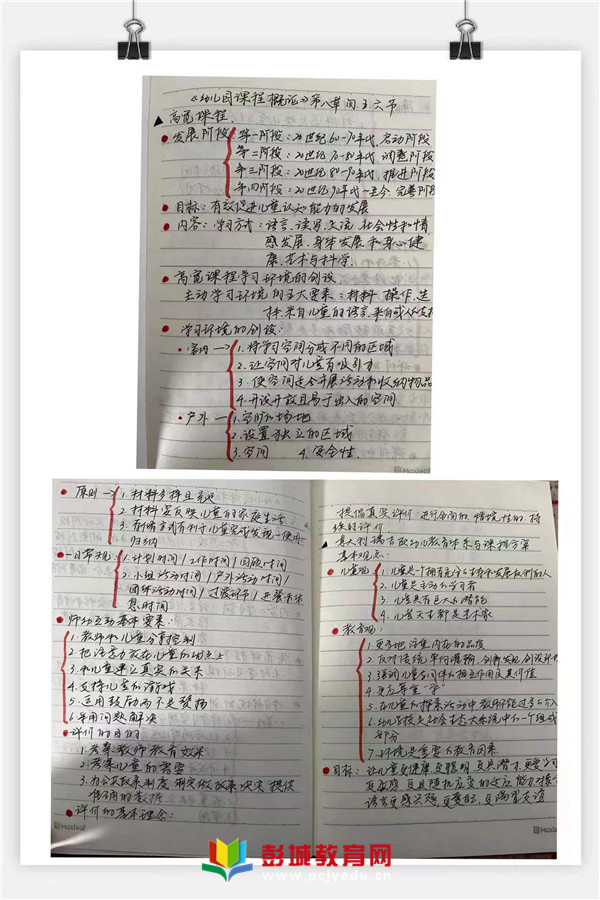 《幼儿园课程概论》第八章问五六节
▲高宽课程
●发展阶段:第一阶段:20世纪60-70年代,启动阶段
第二阶段:20世纪70-80年代 调整阶段
第三阶段:20世纪80-90年代,推进阶段
第四阶段:20世纪90年代-至今 完善阶段
●目标:有效促进儿童认知能力的发展
●内容:学习方式:语言、读写、交流 社会性和情
感发展、身体发展和身心健
康、艺术与科学.
●高宽课程学习环境的创设
主动学习环境的五大要素:材料、操作、选
择、来自儿童的语言、来自成人的支持
●学习环境的创设:
·室内→ 1.将学习空间分成不同的区域
2.让空间对儿童有吸引力
3.使空间适合开展活动和收纳物品
4.开设开放且易于出入的空间
·户外— 1.空间和场地
2.设置独立的区域
3.空间 4.安全性.
●原则→ 1.材料多样且充足
2.材料要反映儿童的家庭生活
3.存储方式有利于儿童完成发现-使用-
归纳
●一日常规: 1.计划时间/工作时间/回顾时间
2.小组活动时间/户外活动时间/
团体活动时间/过渡环节/进餐和休
息时间
●师幼互动基本要素:
1.教师和儿童分享控制
2.把注意力放在儿童的
3.和儿童建立真实的关系
4.支持儿童的游戏
5.运用鼓励而不是赞扬
6.采用问题解决
●评价的目的
1.考察教师教育效果
2.考察儿童的需要
3.为公共政策制度 决定 提供
准确的数据
●评价的基本理念:
提倡真实评价:进行全面的、情境性的、持
续的评价
▲意大利瑞吉欧幼儿教育体系与课程方案
基本观点:
●儿童观: 1.儿童是一个拥有充分生存和发展权利的人
2.儿童是主动的学习者
3.儿童具有巨大的潜能
4.儿童天生都是艺术家
●教育观:
1.更多地注重内在的品质
2.反对传统单向灌输,创新发现
3.强调儿童与同伴的相互作用及其价值
4.更应尊重“学”
5.在儿童的探索活动中教师不能过多的介入
6.幼儿学校是社会大系统中的一个组成
部分
7.环境是重要的教育因素
●目标:让儿童更健康、更聪明、更具潜力、更
彭城教育网
www.pcjyedu.cn